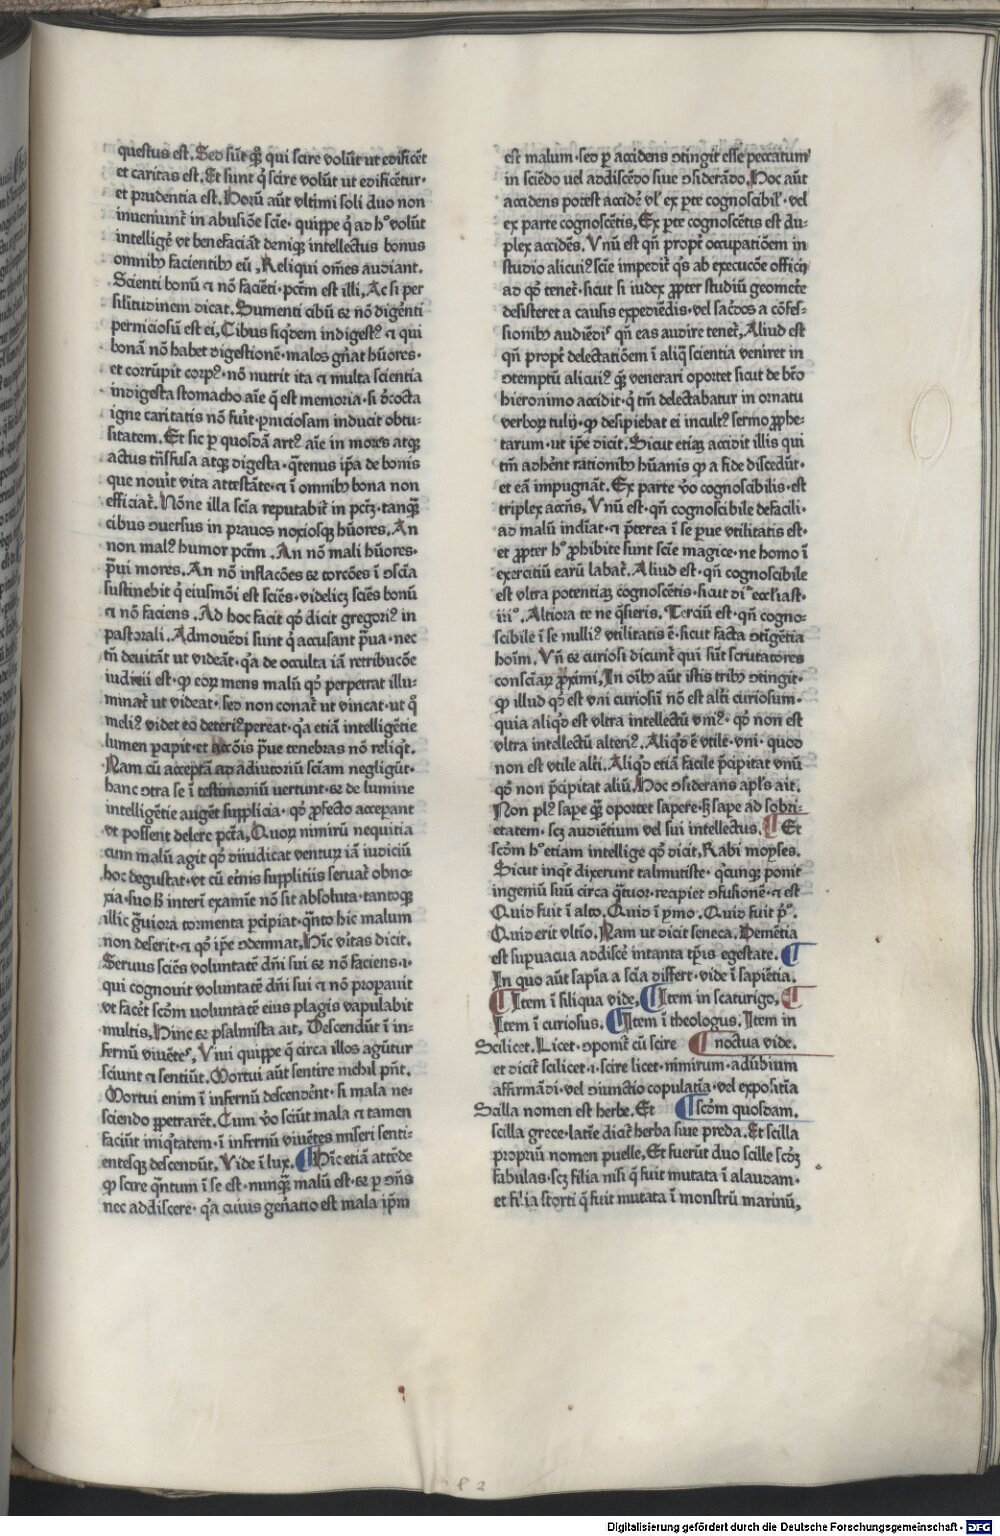 questus est. Sed sūt qq̄ qui scire volūt ut edificēt
et caritas est. Et sunt q̄ scire volūt ut edificētur·
et prudentia est. Horū aūt vltimi soli duo non
inueniunt̄ in abusiōe scīe· quippe q̄ ad hͦ volūt
intelligē vt benefaciāt deniqꝫ intellectus bonus
omnibꝫ facientibꝫ eū. Reliqui om̄es audiant.
Scienti bonū ⁊ nō faciēti·pctm̄ est illi, Ac si per
silitudinem dicat. Sumenti cibū ⁊ nō digēnti
perniciosū est ei, Cibus siqͥdem indigestꝰ ⁊ qui
bonā nō habet digestionē·malos gn̄at hūores·
et corrūpit corpꝰ·nō nutrit ita ⁊ multa scientia
indigesta stomacho aīe q̄ est memoria·si decocta
igne caritatis nō fuīt·pniciosam inducit obtu-
sitatem. Et sic ꝑ quosdā artꝰ aīe in mores atqꝫ
actus trn̄sfusa atqꝫ digesta·qͣtenus ip̄a de bonis
que nouīt vita attestāte·⁊ ī omnibꝫ bona non
efficiat̄. Nōne illa scīa reputabit̄ in pctꝫ·tanqꝫ̄
cibus ꝯuersus in prauos noxiosqꝫ hūores. An
non malꝰ humor pctm̄. An nō mali hūores·
p̄ui mores. An nō inflacōes ⁊ torcōes ī ꝯscīa
sustinebit q̄ eiusmōi est sciēs·videlicꝫ sciēs bonū
⁊ nō faciens. Ad hoc facit qͦ dicit gregoriꝰ in
pastorali. Admouēdi sunt q̄ accusant p̄ua·nec
tn̄ deuitāt ut videāt·qͣa de occulta iā retribucōe
iudicii est·ꝙ eoꝝ mens malū qͦ perpetrat illu-
minat̄ ut videat·sed non conat̄ ut vincat·ut qͦ
meliꝰ videt eo deteriꝰ pereat·qͣa etiā intelligētie
lumen pcipit·et accōis p̄ue tenebras nō reliqͥt.
Nam cū acceptā ad adiutoriū sciam negligūt·
hanc ꝯtra se ī testimoniū vertunt·⁊ de lumine
intelligētie augēt supplicia·qͦ ꝓfecto acceperant
vt possent delere pctā, Quoꝝ nimirū nequitia
cum malū agit qͦ diiudicat venturū iā iudiciū
hoc degustat·vt cū et̄nis suppliciis seruat̄ obno-
xia·suo h̄ interī examīe nō sit absoluta·tantoqꝫ
illic gͣuiora tormenta pcipiat·qͣnto hīc malum
non deserit·⁊ qͦ ip̄e ꝯdemnat, Hīc vītas dicit.
Seruus sciēs voluntatē dn̄i sui ⁊ nō faciens·i·
qui cognouit voluntatē dn̄i sui ⁊ nō propauit
vt facēt scōm uoluntatē eius plagis vapulabit
multis, Hinc ⁊ psalmista ait, Descendūt ī in-
fernū viuētes, Viui quippe q̄ circa illos agūtur
sciunt ⁊ sentiūt. Mortui aūt sentire nichil pn̄t.
Mortui enim ī infernū descendēnt·si mala ne-
sciendo ꝑpetrarēt. Cum vͦo sciūt mala ⁊ tamen
faciūt iniqͥtatem·ī infernū viuētes miseri senti-
entesqꝫ descendūt, Vide ī lux. ¶ Hīc etiā attēde
ꝙ scire qͣntum ī se est·nunqꝫ̄ malū est·⁊ ꝑ ꝯn̄s
nec addiscere·qͣa cuius gen̄atio est mala ip̄m
est malum·sed ꝑ accidens ꝯtingit esse peccatum
in sciēdo uel addiscēdo siue ꝯsiderādo. Hoc aūt
accidens potest accidē vl̓ ex pte cognoscibil̓·vel
ex parte cognoscētis, Ex pte cognoscētis est du-
plex accidēs. Vnū est qn̄ propt̄ occupatiōem in
studio alicuiꝰ scīe impedit̄ qͥs ab execucōe officij
ad qͦ tenet̄·sicut si iudex ꝓpter studiū geometē
desisteret a causis expediēdis·vel sacdos a cōfes-
sionibꝫ audiēdis qn̄ eas audire tenet̄, Aliud est
qn̄ propt̄ delectatiōem ī aliqͣ scientia veniret in
ꝯtemptū alicuiꝰ qꝫ̄ venerari oportet sicut de btō
hieronimo accidit·q̄ tm̄ delectabatur in ornatu
verboꝝ tulij·ꝙ desipiebat ei incultꝰ sermo ꝓphe-
tarum·ut ip̄e dicit. Sicut etiaꝫ accidit illis qui
tm̄ adhēnt rationibꝫ hūanis ꝙ a fide discedūt·
et eā impugnāt. Ex parte vͦo cognoscibilis·est
triplex accn̄s, Vnū est·qn̄ cognoscibile defacili·
ad malū indīat·⁊ p̄terea ī se parue vtilitatis est·
et ꝓpter hͦ ꝓhibite sunt scīe magice·ne homo ī
exercitiū earū labat̄. Aliud est·qn̄ cognoscibile
est vltra potentiaꝫ cognoscētis·sicut dī eccl̓iast·
iiiͦ. Altiora te ne qͣsieris. Terciū est·qn̄ cogno-
scibile ī se nulliꝰ vtilitatis ē·sicut facta ꝯtīgētia
hoīm. Vn̄ ⁊ curiosi dicunt̄ qui sūt scrutatores
consciaꝝ ꝓximi, In oībꝫ aūt istis tribꝫ ꝯtingit·
ꝙ illud qͦ est vni curiosū nō est alt̄i curiosum·
quia aliqͦ est vltra intellectū vniꝰ·qͦ non est
vltra intellectū alteriꝰ. Aliqͦ ē vtile·vni·quod
non est vtile alt̄i. Aliqͦ etiā facile p̄cipitat vnū
qͦ non p̄cipitat aliū. Hoc ꝯsiderans apl̓s ait.
Non plꝰ sape qꝫ̄ oportet sapere·sꝫ sape ad sobri-
etatem·scꝫ audiētium vel sui intellectus. ¶ Et
scōm hͦ etiam intellige qͦ dicit, Rabi moyses.
Sicut inqͥt dixerunt talmutiste·qͥcunqꝫ ponit
ingeniū suū circa qͣtuor·recipiet ꝯfusionē·⁊ est
Quid fuit ī alto. Quid ī ymo. Quid fuit pͥꝰ.
Quid erit vltīo. Nam ut dicit seneca. Demētia
est supuacua addiscē intanta tp̄ris egestate. ¶
In quo aūt sapīa a scīa differt·vide ī sapiētia.
¶ Item ī siliqua vide, ¶ Item in scaturigo, ¶
Item ī curiosus. ¶ Item ī theologus. Item in
Scilicet. Licet·ꝯponit̄ cū scire ¶ noctua vide.
et dicit̄ scilicet·i·scire licet·nīmirum·adūbium
affirmādi·vel ꝯiunctio copulatīa·vel expositīa
Scilla nomen est herbe. Et ¶ scōm quosdam.
scilla grece·latīe dicit̄ herba siue preda. Et scilla
propriū nomen puelle, Et fuerūt duo scille scōꝫ
fabulas·scꝫ filia nisi q̄ fuit mutata ī alaudam·
et filia storti q̄ fuit mutata ī monstrū marinū,
82
Digitalisierung gefördert durch die Deutsche Forschungsgemeinschaft - DFG